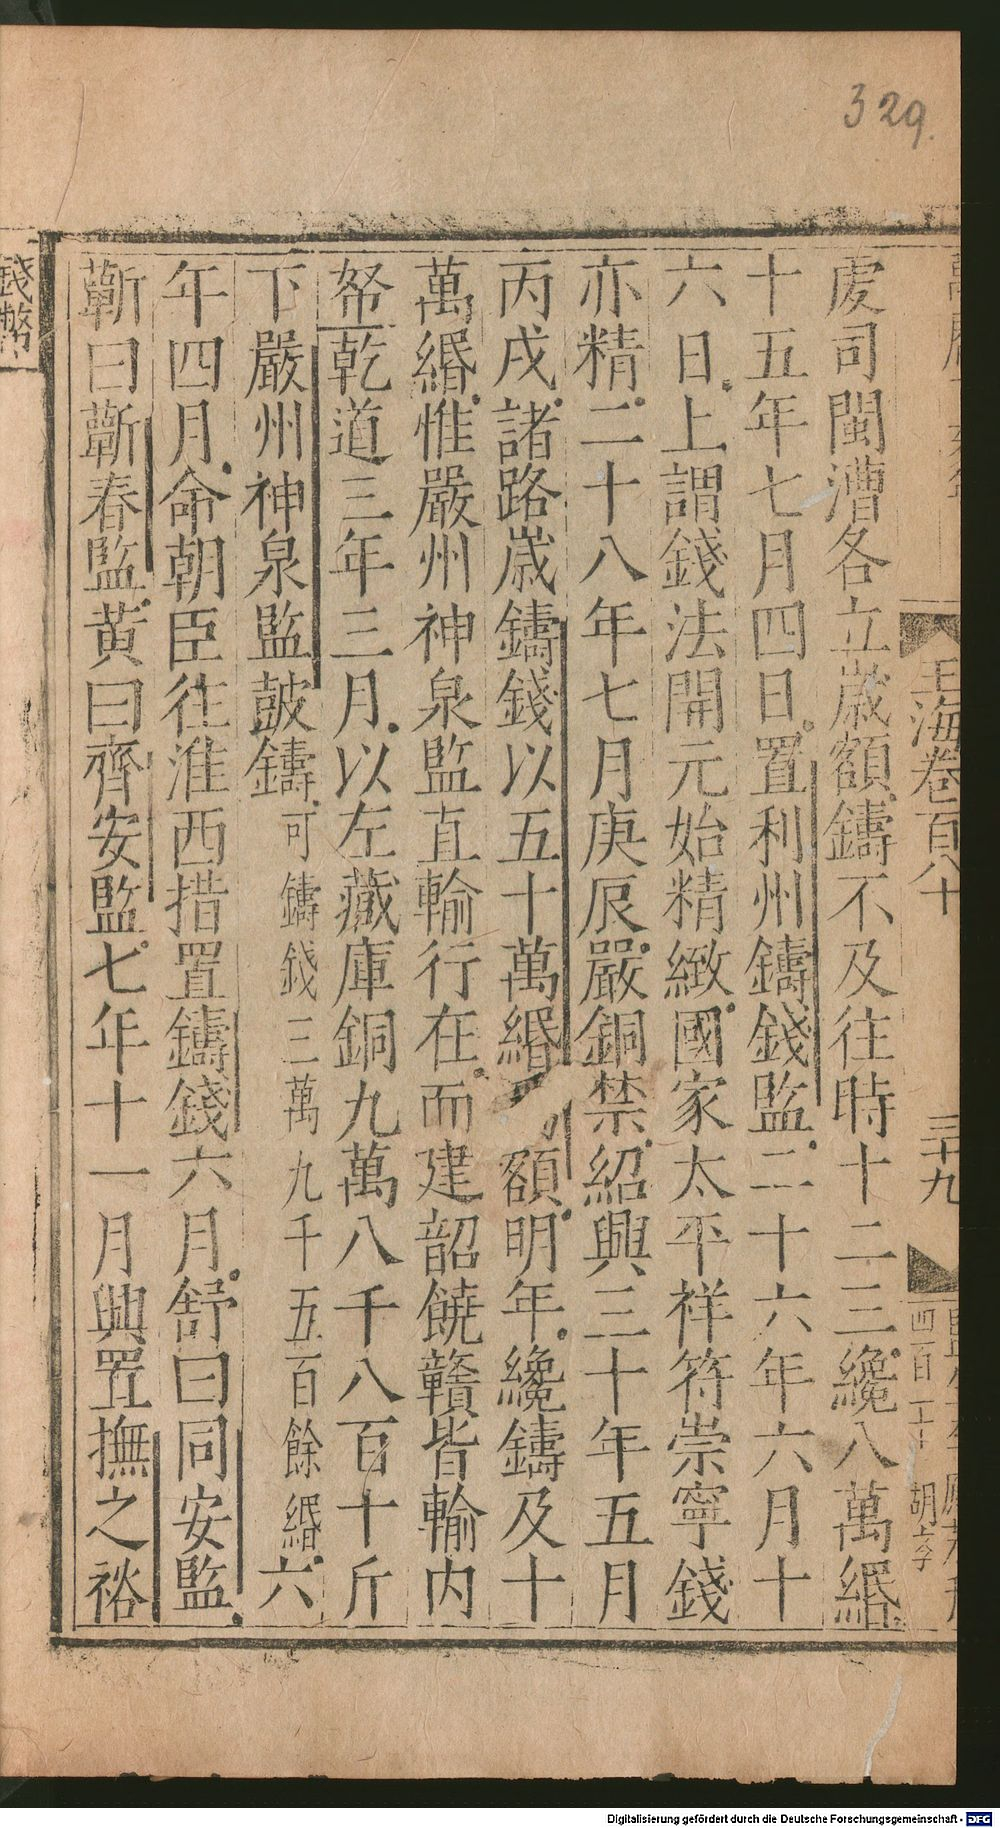 329.
玉海卷百八十
三十九
處司閩漕各立歲額鑄不及往時十二三纔八萬緡
十五年七月四日置利州鑄錢監二十六年六月十
六日上謂錢法開元始精緻國家太平祥符崇寧錢
亦精二十八年七月庚辰嚴銅禁紹興三十年五月
丙戌諸路嵗鑄錢以五十萬緡額明年纔鑄及十
萬緡惟嚴州神泉監直輸行在而建韶饒贛皆輸內
帑乾道三年三月以左藏庫銅九萬八千八百十斤
下嚴州神泉監鼓鑄可鑄錢三萬九千五百餘緡六
年四月命朝臣往淮西措置鑄錢六月舒曰同安監
蘄曰蘄春監黄曰齊安監七年十一月興置撫之裕
錢幣
Digitalisierung gefördert durch die Deutsche Forschungsgemeinschaft - DFG